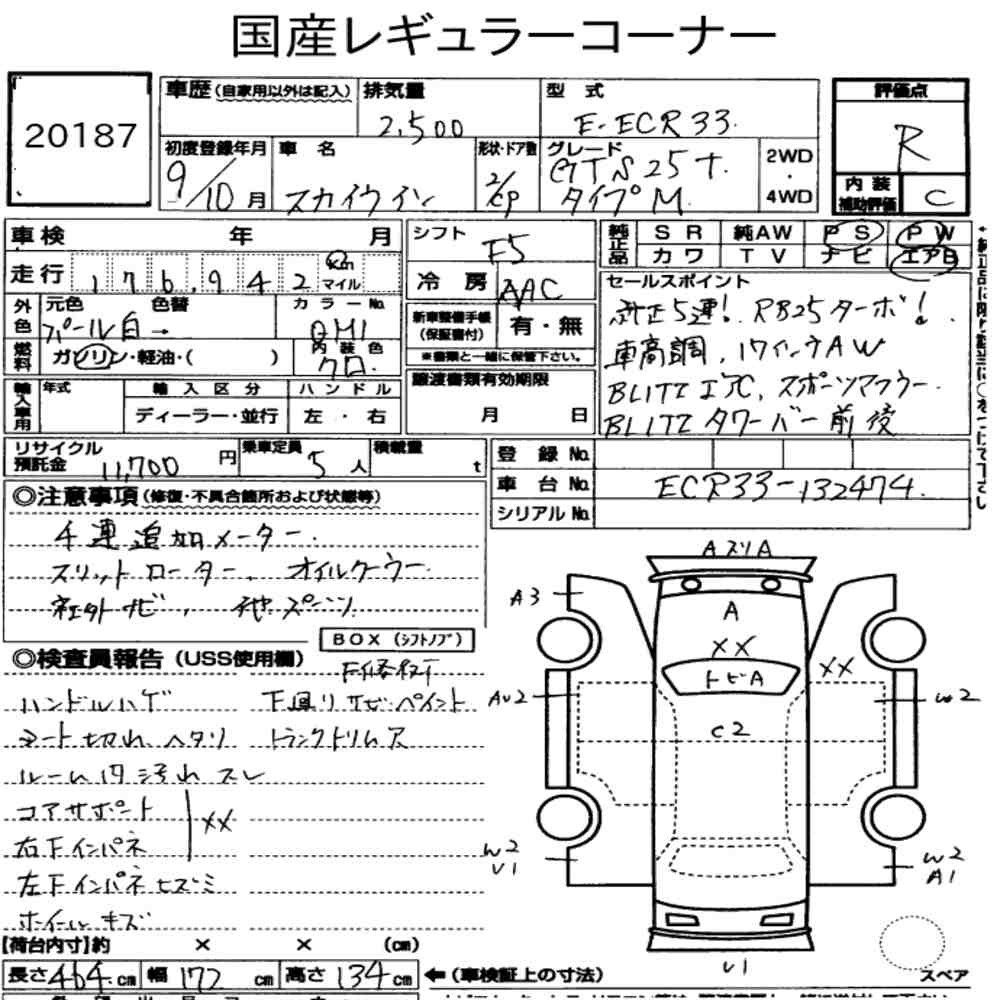 国産レギュラーコーナー
20187
車歴(自家用以外は記入) 排気量 2,500 型式 E-ECR33
評価点 R
初度登録年月 9/10月 車名 スカイライン 形状・ドア数 2/cp グレード GTS25T タイプM 2WD・4WD
内装補助評価 C
車検 年 月 シフト F5
純正品 SR 純AW PS PW
カワ TV ナビ エアB
走行 176,942 Km マイル 冷房 AAC
セールスポイント
外色 元色 色替 カラーNo.
パール白→ QM1
新車整備手帳(保証書付) 有・無
※書類と一緒に保管下さい。
純正5速! RB25ターボ!
車高調、17インチAW
BLITZ エアC、スポーツマフラー
BLITZ タワーバー前後
燃料 ガソリン・軽油・( ) 内装色 クロ
輸入車用 年式 輸入区分 ハンドル
ディーラー・並行 左・右
譲渡書類有効期限
月 日
リサイクル預託金 11,700円 乗車定員 5人 積載量 t
登録No.
車台No. ECR33-132474
シリアルNo.
◎注意事項(修復・不具合箇所および状態等)
4連追加メーター
スリットローター、オイルクーラー
社外ナビ、他スポーツ
BOX(シフトノブ)
◎検査員報告(USS使用欄)
F修復
ハンドルハゲ 下廻りサビ・ペイント
シート切れ、ヘタリ トランクトリムア
ルーム内汚れスレ
コアサポート
XX
右Fインパネ
左Fインパネヒズミ
ホイールキズ
AスリA
A3
A
XX
XX
トビA
AU2
W2
C2
W2
U1
W2
A1
U1
スペア
【荷台内寸】約 × × (cm)
長さ464cm 幅172cm 高さ134cm ←(車検証上の寸法)